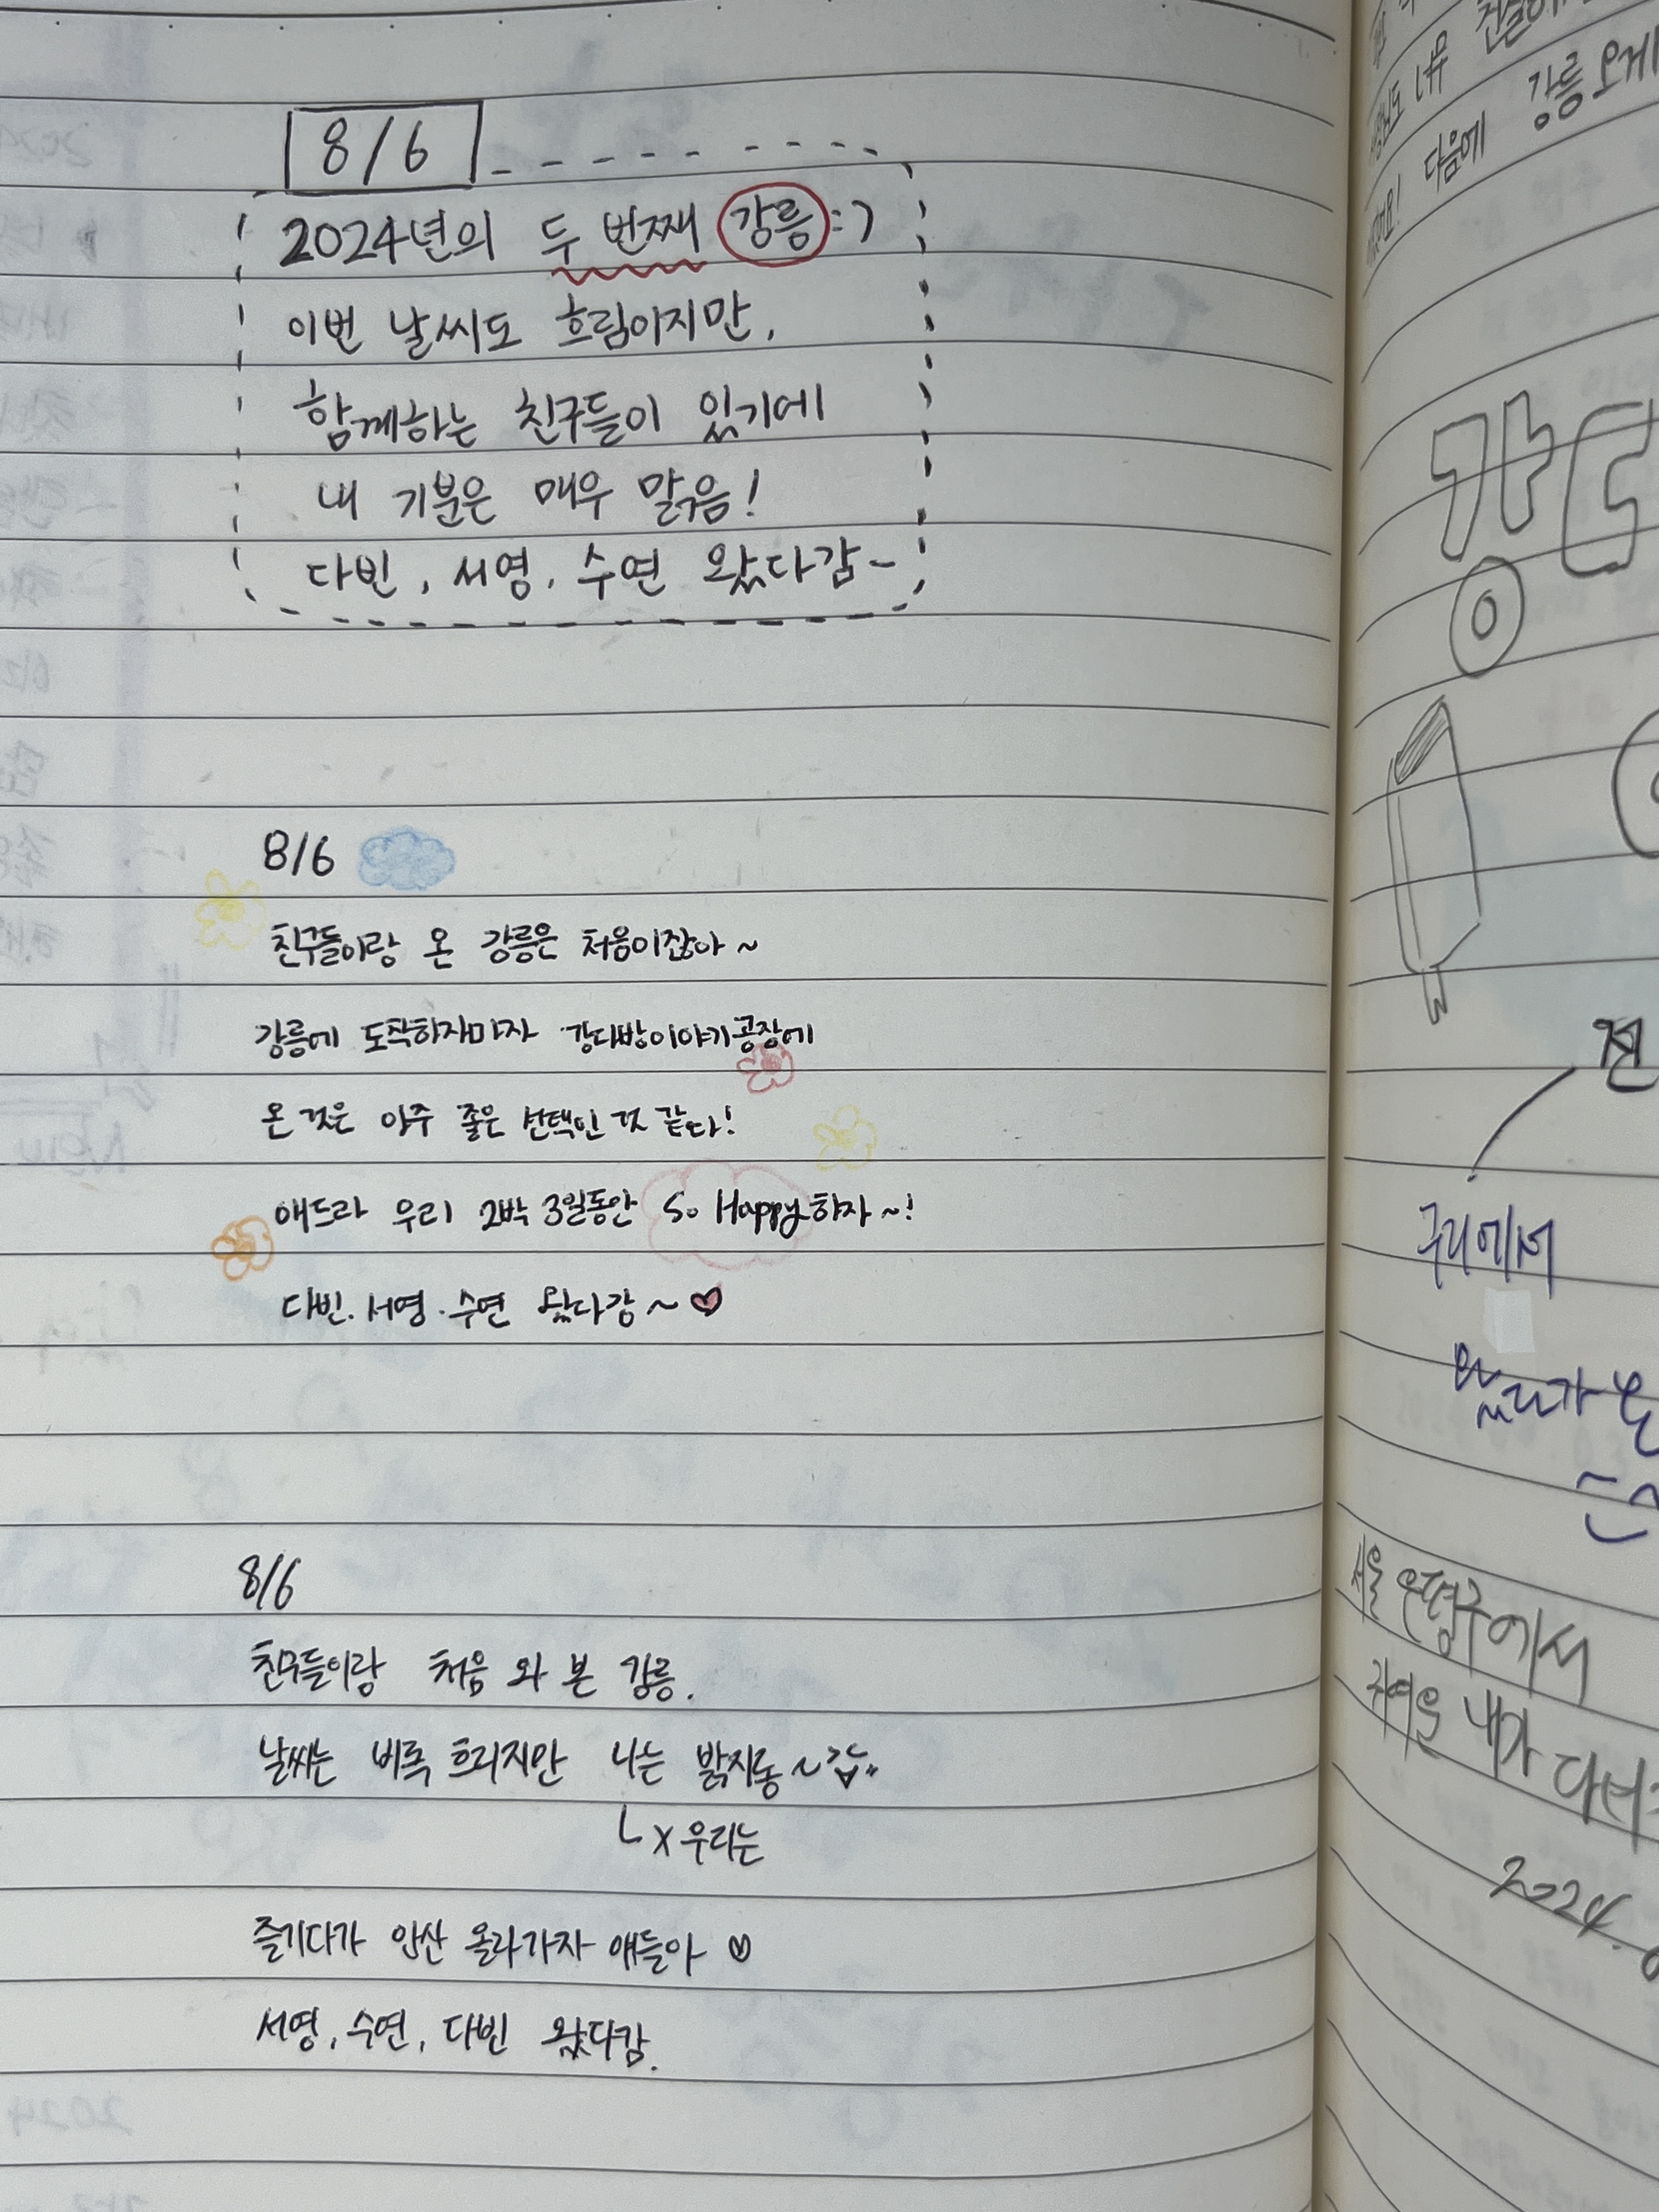 8/6
2024년의 두 번째 강릉 :)
이번 날씨도 흐림이지만,
함께하는 친구들이 있기에
내 기분은 매우 맑음!
다빈, 서영, 수연 왔다감~
8/6
친구들이랑 온 강릉은 처음이잖아~
강릉에 도착하자마자 강다방이야기공장에
온 것은 아주 좋은 선택인 것 같다!
애드라 우리 2박 3일동안 So Happy하자~!
다빈. 서영. 수연 왔다감~♥
8/6
친구들이랑 처음 와 본 강릉.
날씨는 비록 흐리지만 나는 밝지롱~
x 우리는
즐기다가 안산 올라가자 얘들아 ♡
서영, 수연, 다빈 왔다감.
다음에 강릉 오게
강다
구리에서
서울 은평구에서
귀여운 내가 다녀
2024.